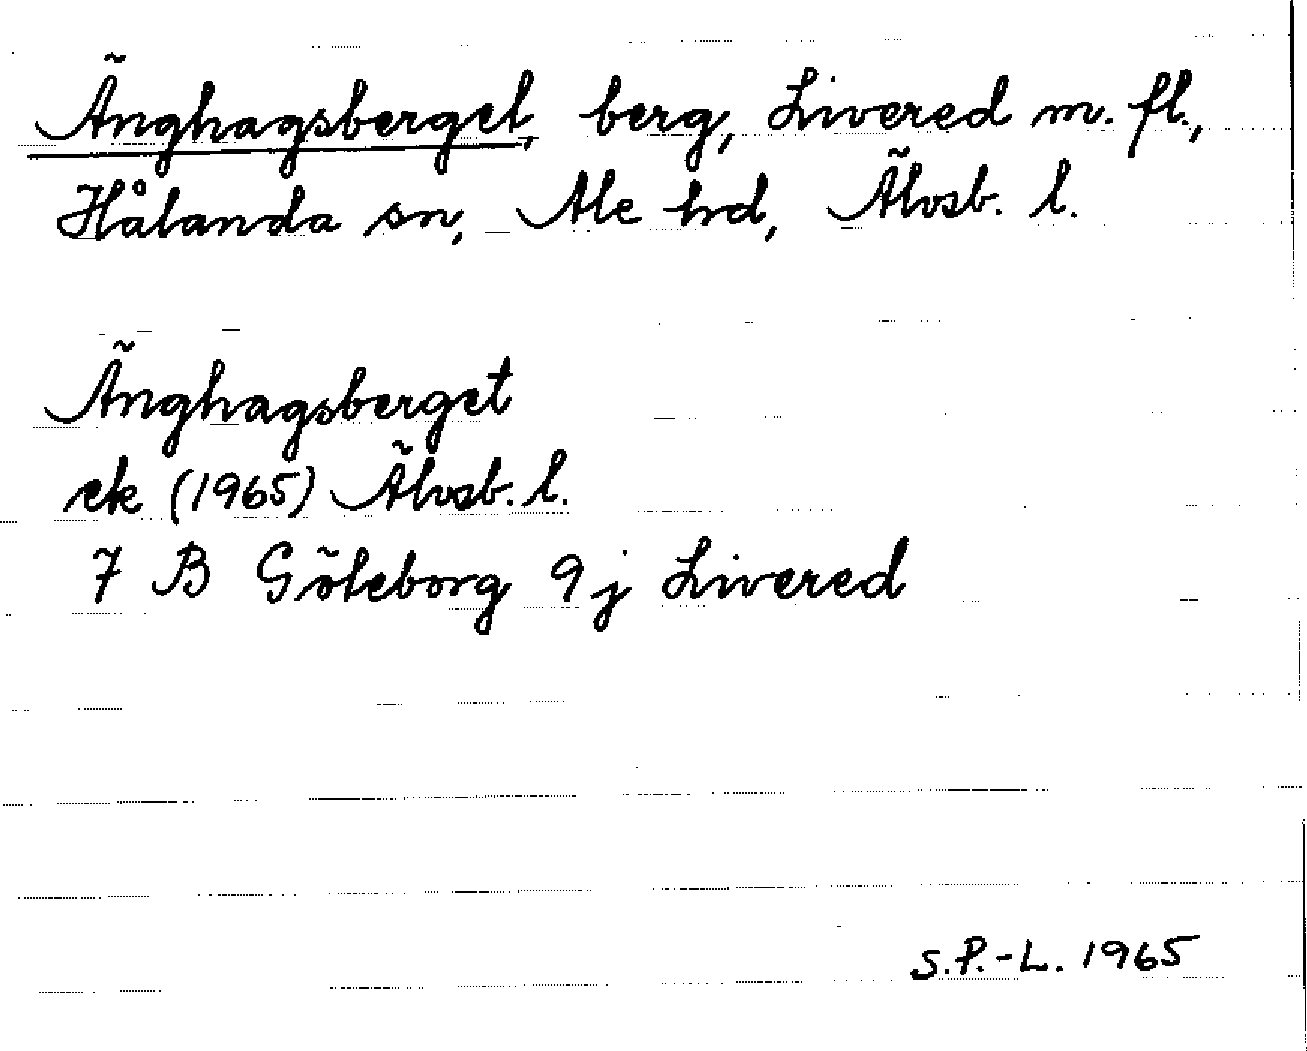 Änghagsberget, berg, Livered m. fl.,
Hålanda sn, Ale hrd, Älvsb. l.
Änghagsberget
ek (1965) Älvsb. l.
7 B Göteborg 9 j Livered
S.P.-L. 1965